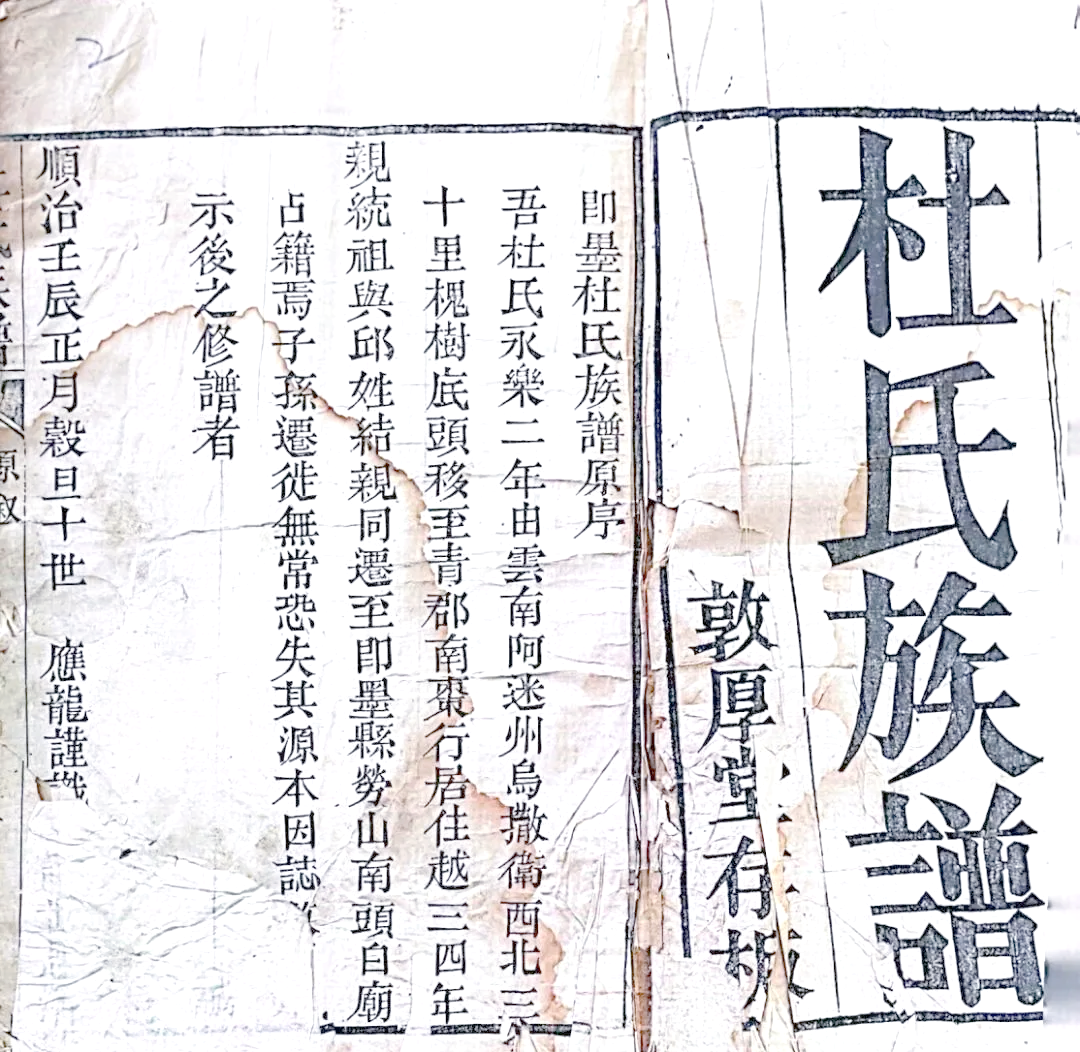 杜氏族譜
敦厚堂存板
即墨杜氏族譜原序
吾杜氏永樂二年由雲南阿迷州烏撒衛西北三
十里槐樹底頭移至青郡南棗行居住越三四年
親統祖與邱姓結親同遷至即墨縣勞山南頭白廟
占籍焉子孫遷徙無常恐失其源本因誌
示後之修譜者
順治壬辰正月穀旦十世 應龍謹識
原敘
2